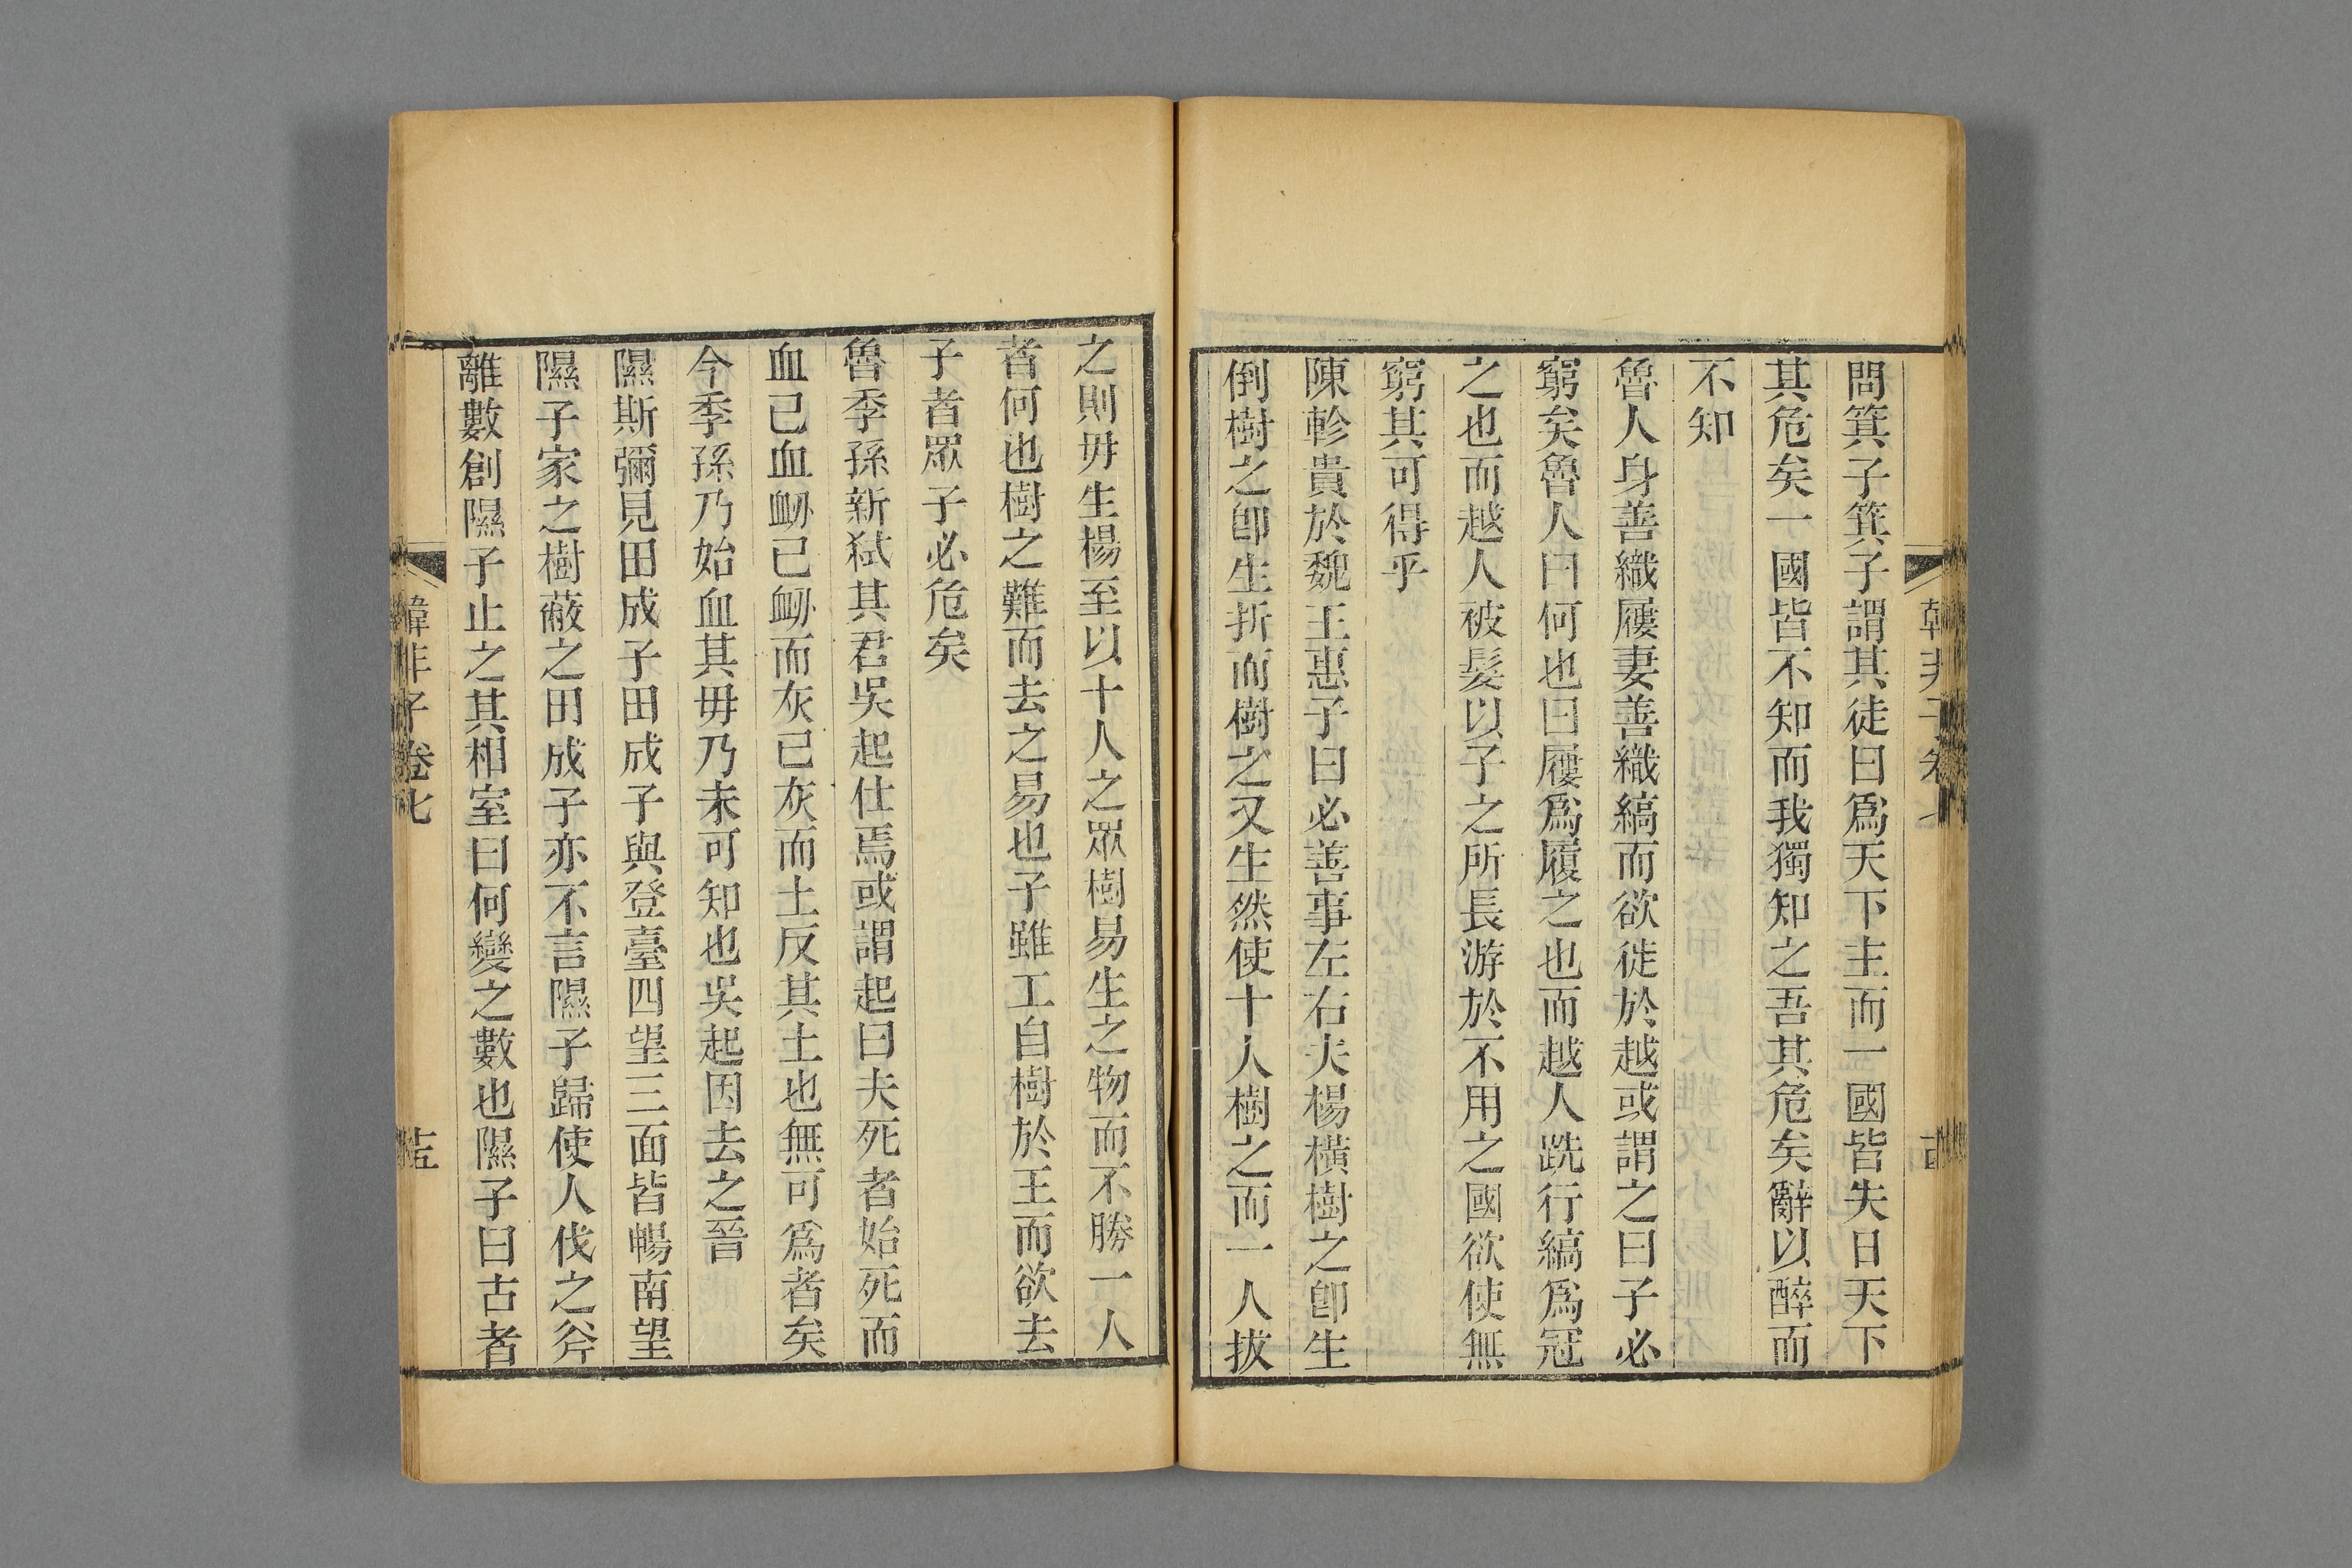 問箕子箕子謂其徒曰爲天下主而一國皆失日天下
其危矣一國皆不知而我獨知之吾其危矣辭以醉而
不知
魯人身善織屨妻善織縞而欲徙於越或謂之曰子必
窮矣魯人曰何也曰屨爲履之也而越人跣行縞爲冠
之也而越人被髮以子之所長游於不用之國欲使無
窮其可得乎
陳軫貴於魏王惠子曰必善事左右夫楊橫樹之卽生
倒樹之卽生折而樹之又生然使十人樹之而一人拔
之則毋生楊至以十人之眾樹易生之物而不勝一人
者何也樹之難而去之易也子雖工自樹於王而欲去
子者眾子必危矣
魯季孫新弑其君吳起仕焉或謂起曰夫死者始死而
血已血衂已衂而灰已灰而土反其土也無可爲者矣
今季孫乃始血其毋乃未可知也吳起因去之晉
隰斯彌見田成子田成子與登臺四望三面皆暢南望
隰子家之樹蔽之田成子亦不言隰子歸使人伐之斧
離數創隰子止之其相室曰何變之數也隰子曰古者
韓非子卷七